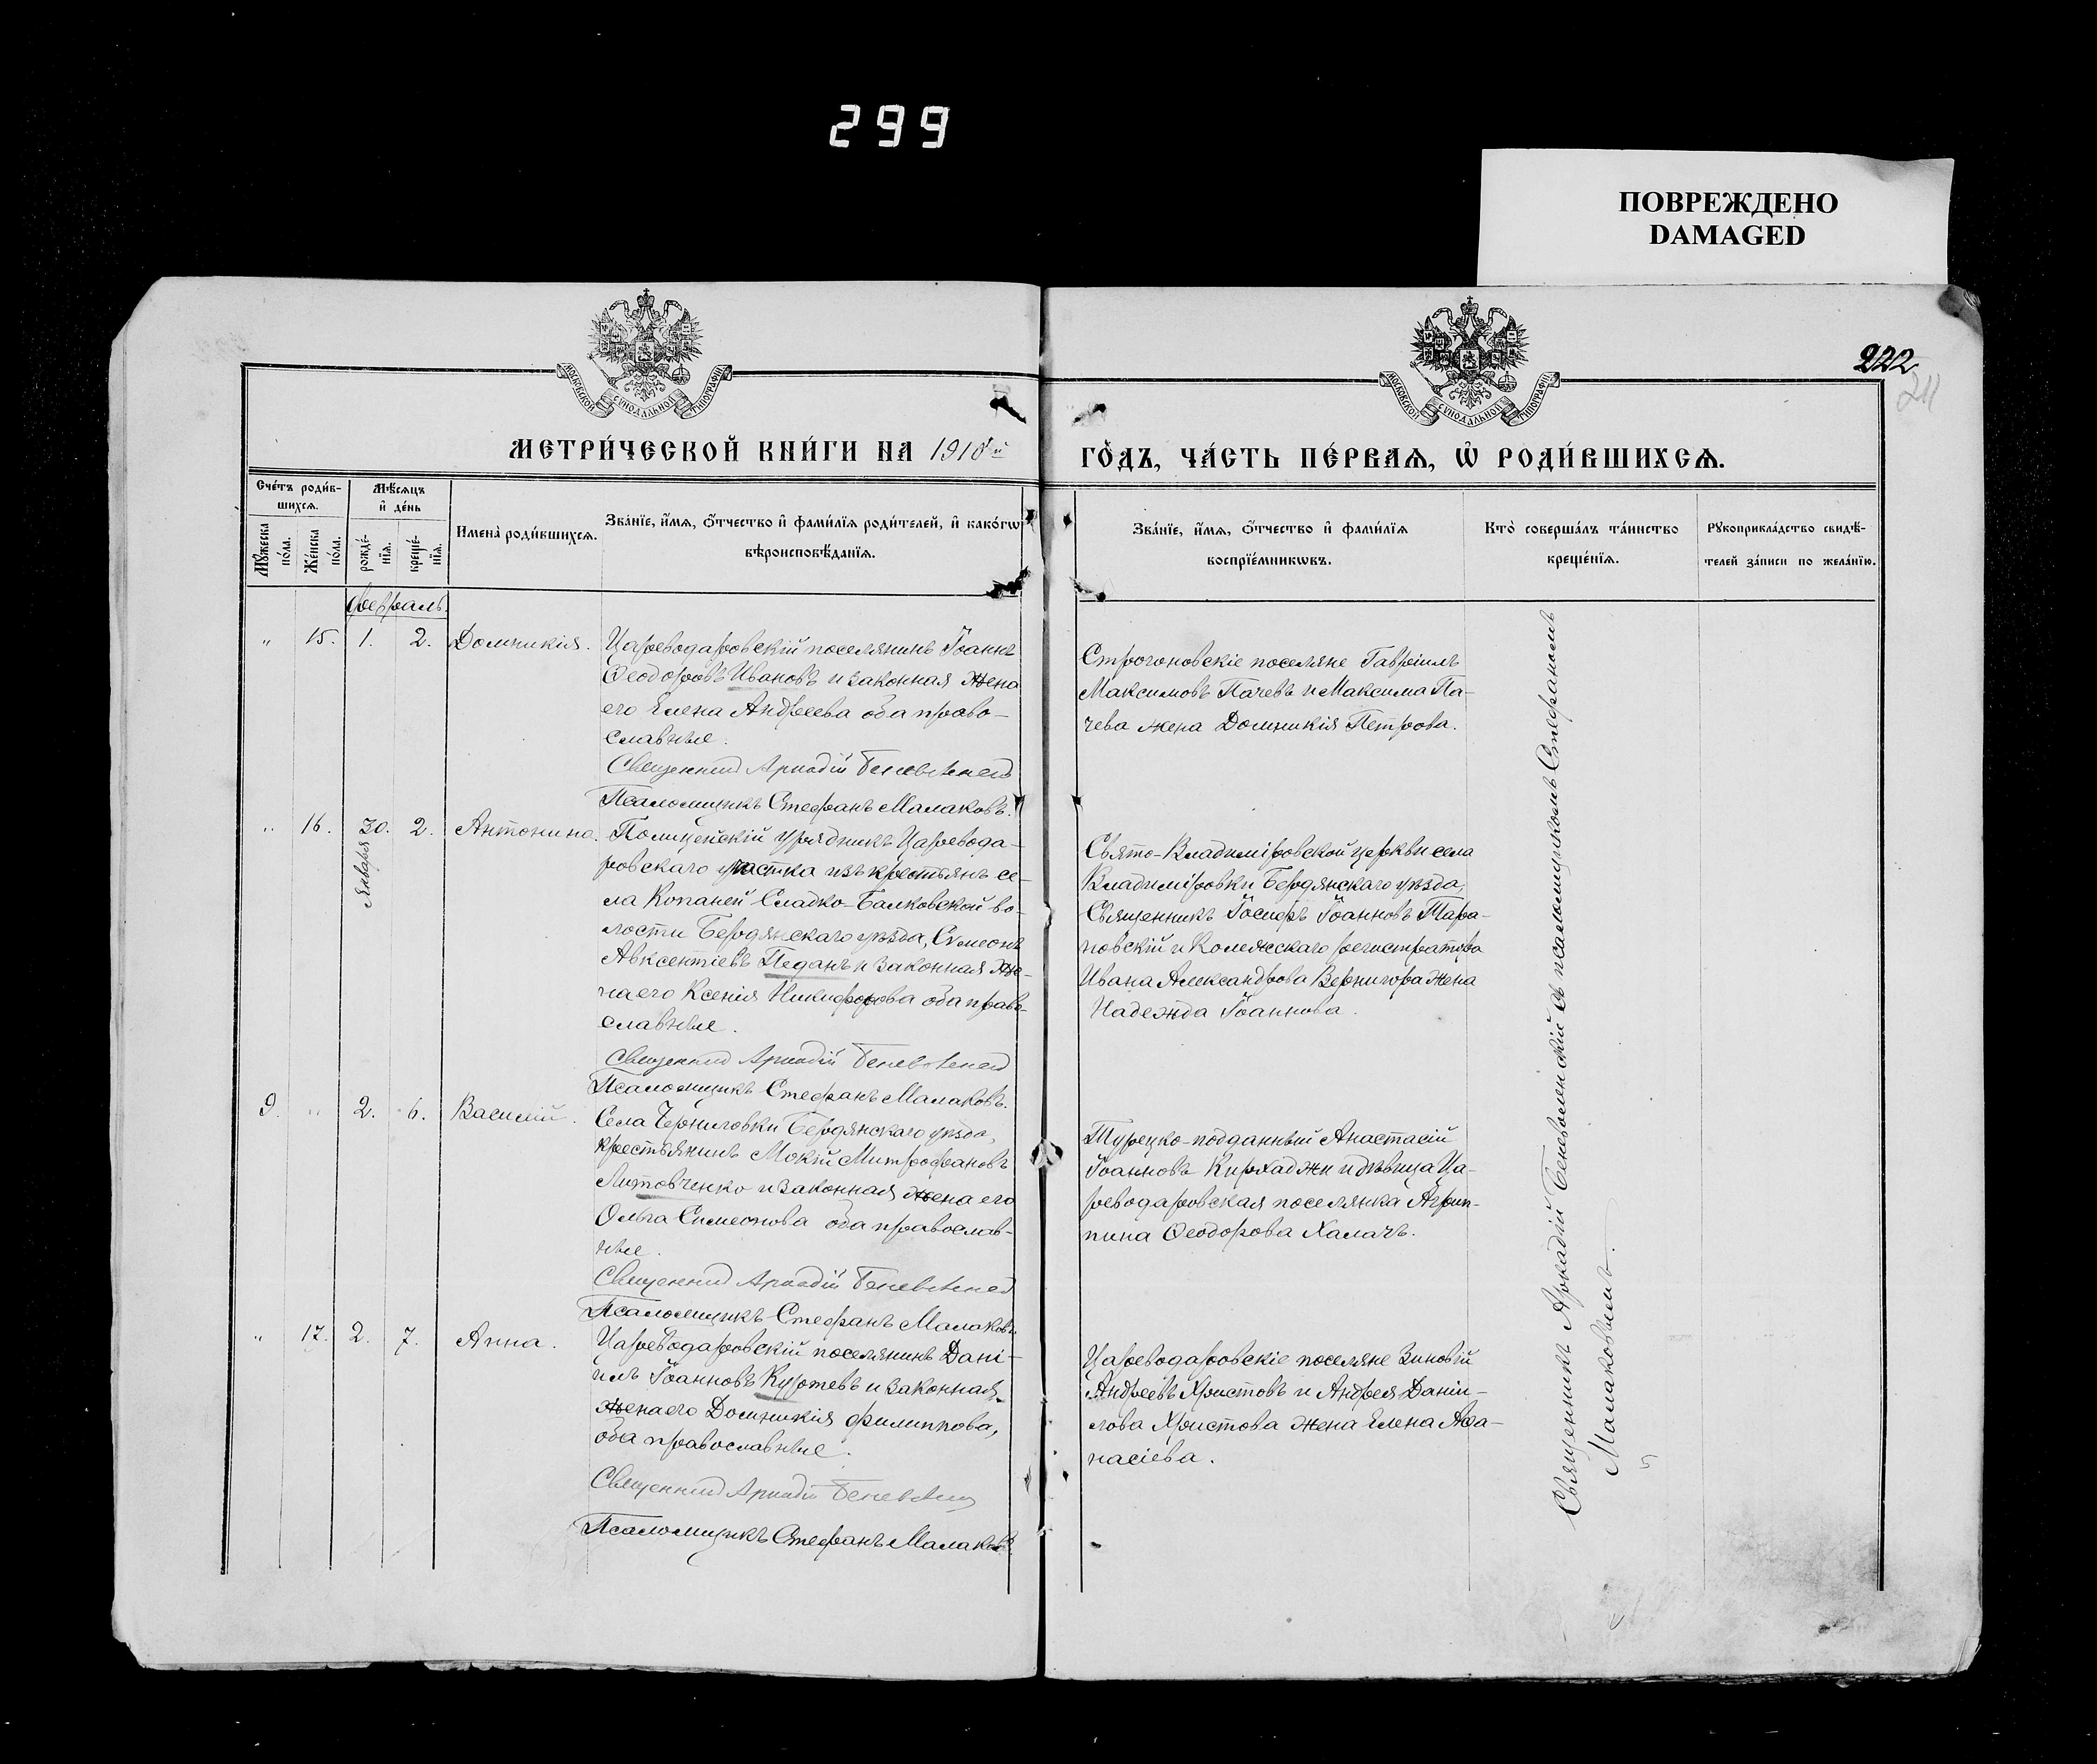 299
ПОВРЕЖДЕНО
DAMAGED
МОСКОВСКОЙ СѴНОДАЛЬНОЙ ТИПОГРАФІИ
МОСКОВСКОЙ СѴНОДАЛЬНОЙ ТИПОГРАФІИ
222
211
МЕТРИ́ЧЕСКОЙ КНИ́ГИ НА 1910й
ГО́ДЪ, ЧА́СТЬ ПЕ́РВАѦ, Ѡ҆ РОДИ́ВШИХСѦ.
Сче́тъ роди́в-
шихсѧ.
Мѣ́сѧцъ
и҆ де́нь
Мꙋ́жеска
по́ла.
Же́нска
по́ла.
рожде́-
нїѧ.
креще́-
нїѧ.
Имена̀ роди́вшихсѧ.
Зва́нїе, и҆́мѧ, ѻ҆́тчество и҆ фами́лїѧ роди́телей, и҆ како́гѡ
вѣроисповѣ́данїѧ.
Зва́нїе, и҆́мѧ, ѻ҆́тчество и҆ фами́лїѧ
воспрїе́мникѡвъ.
Кто̀ соверша́лъ та́инство
креще́нїѧ.
Рꙋкоприкла́дство свидѣ́-
телей за́писи по жела́нїю.
Февраль.
" 15. 1. 2. Домникія.
Цареводаровскій поселянинъ Іоаннъ
Ѳеодоровъ Ивановъ и законная жена
его Елена Андреева оба право-
славные.
Священникъ Аркадій Беневоленскій
Псаломщикъ Стефанъ Малаковъ.
Строгоновскіе поселяне Гавріилъ
Максимовъ Пачевъ и Максима Па-
чева жена Домникія Петрова.
" 16. 30. 2. Антонина.
Января
Полицейскій урядникъ Царевода-
ровскаго участка изъ крестьянъ се-
ла Копаней Сладко-Балковской во-
лости Бердянскаго уѣзда, Сѵмеонъ
Авксентіевъ Педанъ и законная же-
на его Ксенія Никифорова оба право-
славные.
Священникъ Аркадій Беневоленскій
Псаломщикъ Стефанъ Малаковъ.
Свято-Владиміровской церкви села
Владиміровки Бердянскаго уѣзда,
Священникъ Іосифъ Іоанновъ Тара-
новскій и Коллежскаго регистратора
Ивана Александрова Вернигора жена
Надежда Іоаннова.
9. " 2. 6. Василій.
Села Черниговки Бердянскаго уѣзда,
крестьянинъ Мокій Митрофановъ
Литовченко и законная жена его
Ольга Симеонова оба православ-
ные.
Священникъ Аркадій Беневоленскій
Псаломщикъ Стефанъ Малаковъ.
Турецко-подданный Анастасій
Іоанновъ Кирхаджи и дѣвица Ца-
реводаровская поселянка Агрип-
пина Ѳеодорова Халачъ.
" 17. 2. 7. Анна.
Цареводаровскій поселянинъ Дані-
илъ Іоанновъ Куртевъ и законная
жена его Домникія Филиппова,
оба православные.
Священникъ Аркадій Беневоленскій
Псаломщикъ Стефанъ Малаковъ.
Цареводаровскіе поселяне Зиновій
Андреевъ Христовъ и Андрея Даніи-
лова Христова жена Елена Аѳа-
насіева.
Священникъ Аркадій Беневоленскій съ псаломщикомъ Стефаномъ
Малаковымъ.